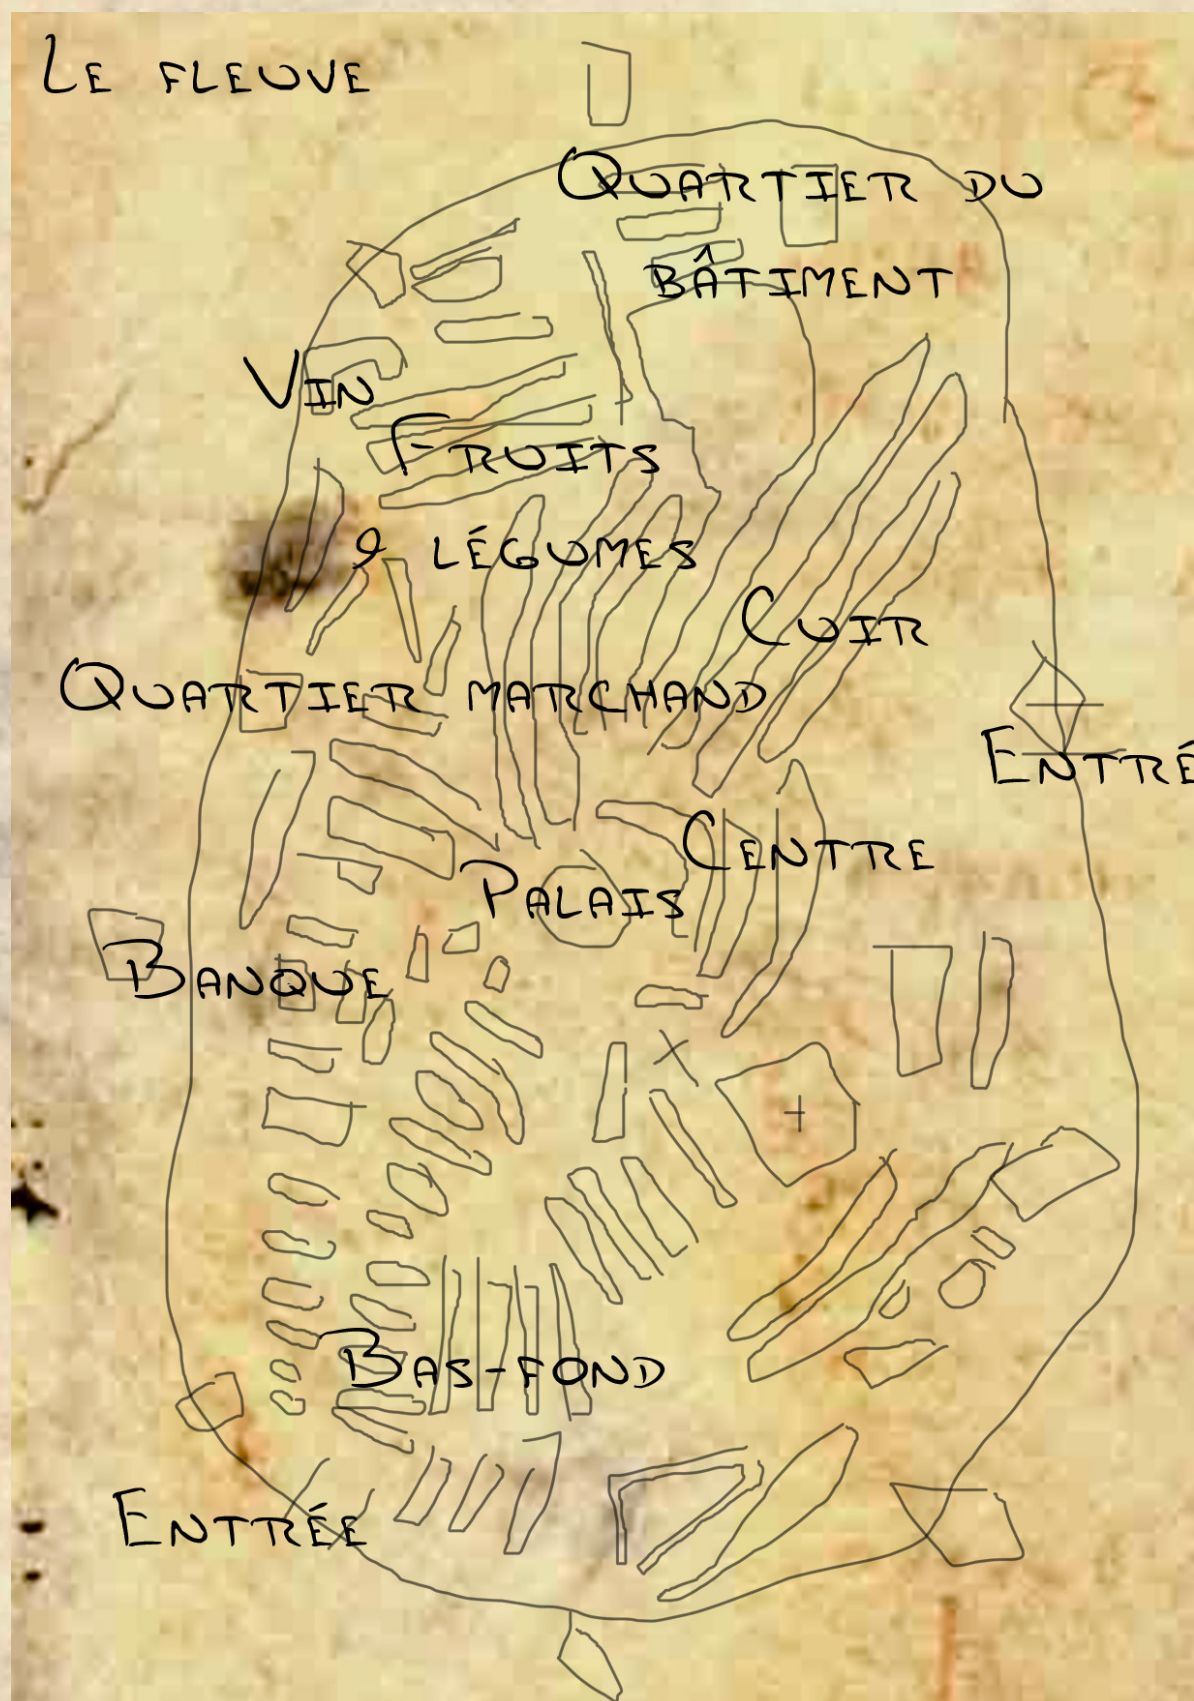 LE FLEUVE
QUARTIER DU
BÂTIMENT
VIN
FRUITS
& LÉGUMES
CUIR
QUARTIER MARCHAND
ENTRÉ
CENTRE
PALAIS
BANQUE
BAS-FOND
ENTRÉE